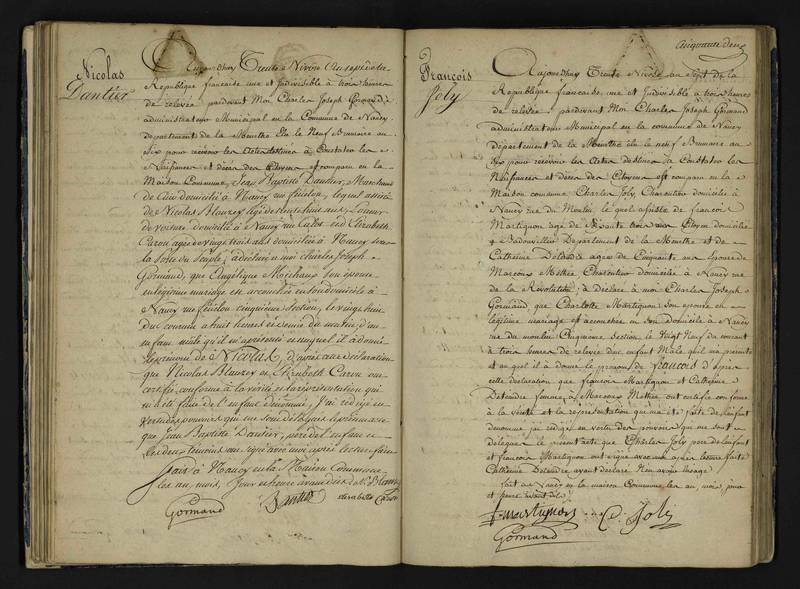 Nicolas
Dantier
Aujourd'huy Trente Nivose An sept de la
République française une et Indivisible à trois heures
de relevée pardevant Moi Charles Joseph Gormand
administrateur Municipal en la Commune de Nancy
departement de la Meurthe élu le Neuf Brumaire an
Six pour recevoir les Actes destinés à Constater les
Naissances et décès des Citoyens est comparu en la
Maison Commune, Jean Baptiste Dantier, Marchand
domicilié à Nancy rue fénelon, lequel assisté
de Nicolas Hanzey agé de trente ans, Loueur
de voiture domicilié à Nancy rue Callot et d'Elisabeth
Carou agée de vingt trois ans domiciliée à Nancy
du Peuple; a déclaré à moi Charles Joseph
Gormand, que Angélique Michaux son épouse
en légitime mariage est accouchée en son domicile à
Nancy rue fénelon cinquieme Section, le vingt huit
du courant à huit heures et demie du matin, d'un
enfant mâle qu'il m'a présenté et auquel il a donné
le prénom de Nicolas, d'après cette déclaration
que Nicolas Hanzey et Elisabeth Carou ont
certifié conforme à la vérité et la représentation qui
m'a été faite de l'enfant dénommé, J'ai rédigé en
vertu des pouvoirs qui me sont délégués le présent acte
que Jean Baptiste Dantier, père de l'enfant et
les deux temoins ont signé avec moi après lecture faite
fait à Nancy en la Maison Commune
les an, mois, jour et heure avant dits
Dantier elisabette Carou
Gormand
cinquante deux
François
Joly
Aujourdhuy Trente Nivose an Sept de la
République française une et Indivisible à trois heures
de relevée pardevant Moi Charles Joseph Gormand
administrateur Municipal en la commune de Nancy
departement de la Meurthe élu le neuf Brumaire an
Six pour recevoir les Actes destinés à Constater les
Naissances et décès des Citoyens est comparu en la
Maison commune Charles Joly, Charpentier domicilié à
Nancy rue du Moulin lequel assisté de francois
Martignon agé de soixante trois ans Citoyen domicilié
à Badonviller Departement de la Meurthe et de
Catherine Delandre agée de Cinquante ans épouse de
Marcours Mathes Charpentier domiciliée à Nancy rue
de la Révolution; à Déclaré à moi Charles Joseph
Gormand que Charlotte Martignon son epouse en
légitime mariage est accouchée en son Domicile à Nancy
rue du moulin Cinquieme Section le Vingt Neuf du courant
à trois heures de relevée d'un enfant Mâle qu'il m'a presenté
et auquel il a donné le prenom de francois d'apres
cette declaration que francois Martignon et Catherine
Delandre femme à Marcours Mathes ont certifié conforme
à la vérité et la représentation qui m'a eté faite de l'enfant
denommé jai redigé en vertu des pouvoirs qui me sont
délégués le présent acte que Charles Joly pere de l'enfant
et francois Martignon ont signé avec moi apres lecture faite
Catherine Delandre ayant declaré n'en avoir l'usage
fait à Nancy en la maison Commune les an, mois, jour
et heure avant dits
f martignon C. Joly
Gormand